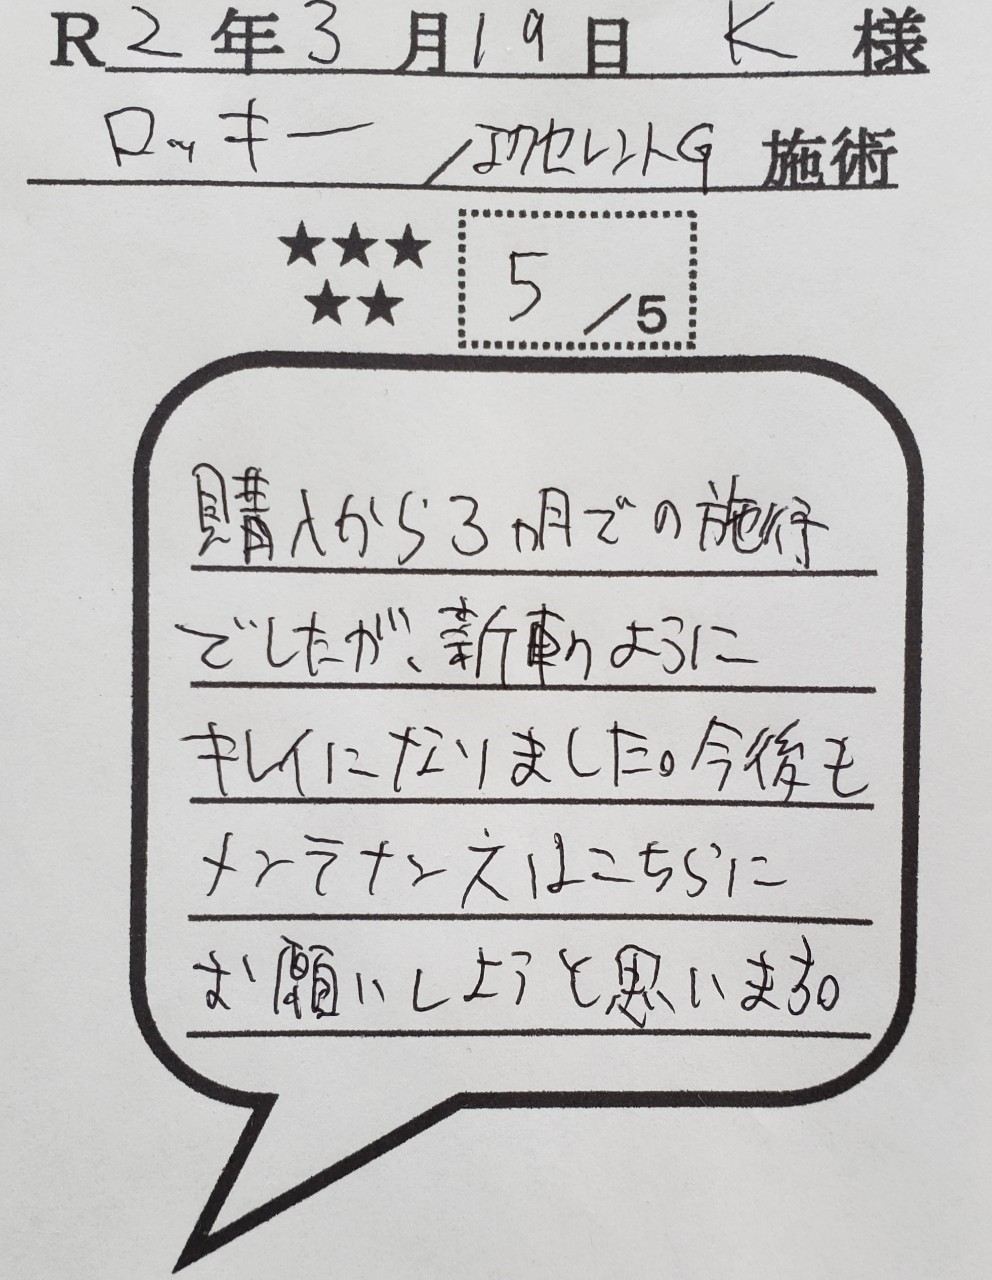 R2年3月19日 K 様
ロッキー/エクセレントG 施術
★★★
★★
5/5
購入から3ヵ月での施行
でしたが、新車のように
キレイになりました。今後も
メンテナンスはこちらに
お願いしようと思います。